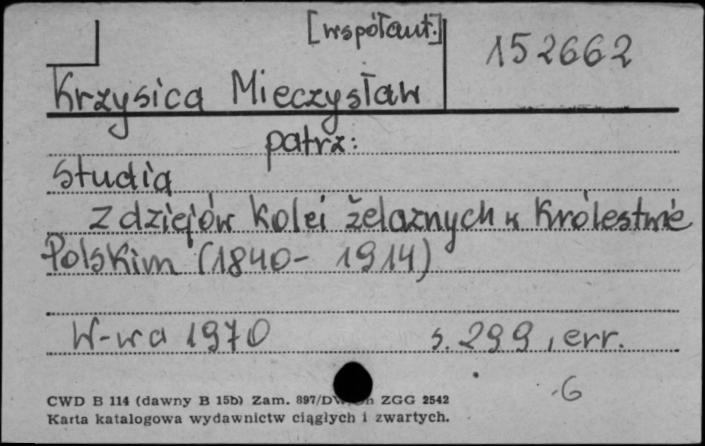 [współaut.]
152662
Krzysica Mieczysław
patrz:
Studia
z dziejów kolei żelaznych w Królestwie
Polskim (1840-1914)
W-wa 1970 s. 299, err.
6
CWD B 114 (dawny B 15b) Zam. 897/ ZGG 2542
Karta katalogowa wydawnictw ciągłych i zwartych.